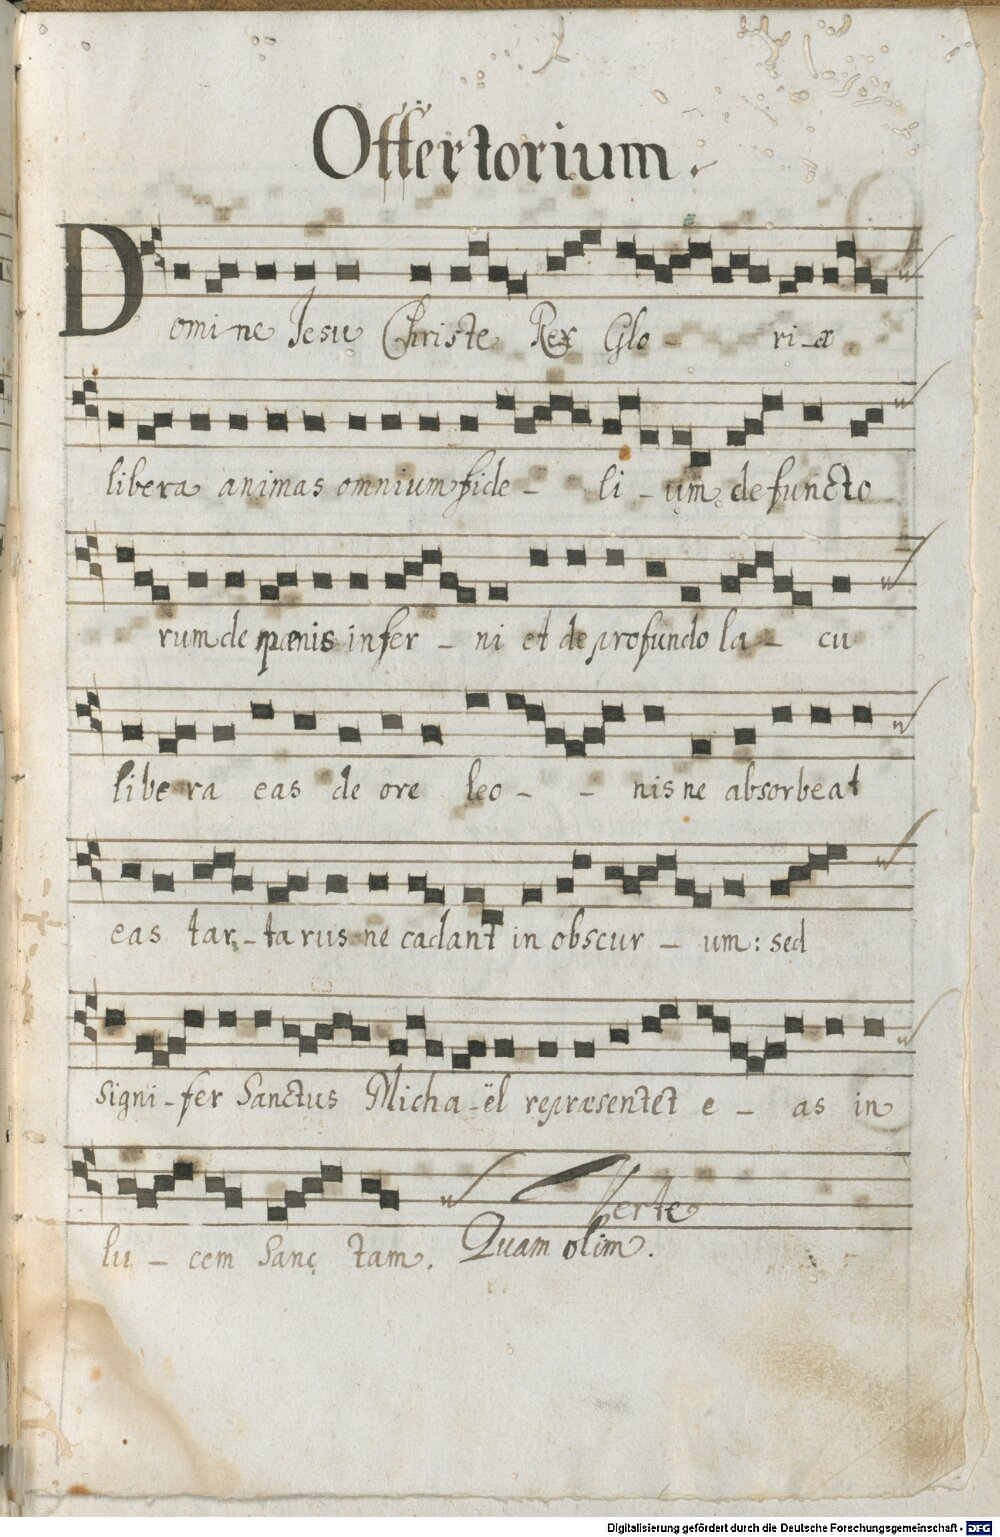 Offertorium.
Domine Jesu Christe Rex Glo - ri-æ
libera animas omnium fide - li - um defuncto
rum de pœnis infer - ni et de profundo la - cu
libera eas de ore leo - - nis ne absorbeat
eas tar-ta rus ne cadant in obscur - um: sed
signi-fer Sanctus Micha-ël repræsentet e - as in
Verte
lu - cem Sanc tam. Quam olim.
Digitalisierung gefördert durch die Deutsche Forschungsgemeinschaft - DFG